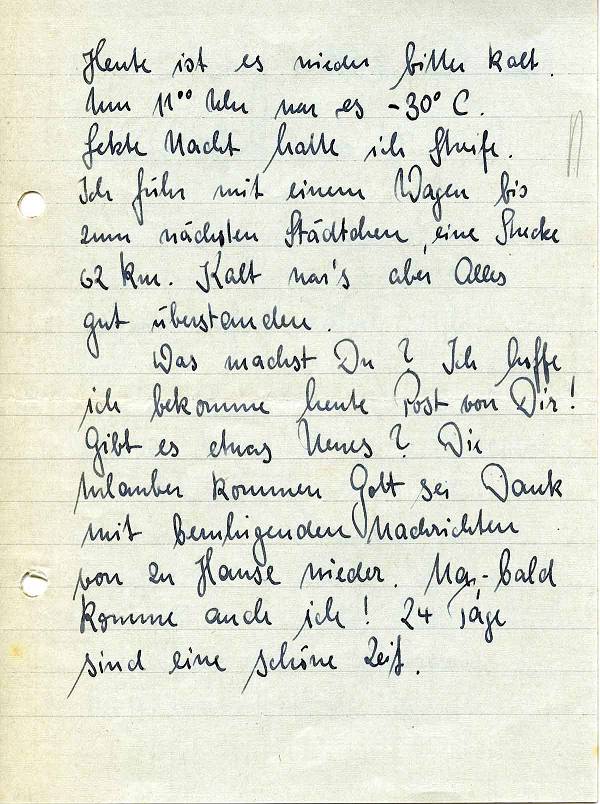 Heute ist es wieder bitter kalt.
Um 11°° Uhr war es -30° C.
Letzte Nacht hatte ich Streife.
Ich fuhr mit einem Wagen bis
zum nächsten Städtchen, eine Strecke
62 km. Kalt war's aber Alles
gut überstanden.
Was machst Du? Ich hoffe
ich bekomme heute Post von Dir!
Gibt es etwas Neues? Die
Urlauber kommen Gott sei Dank
mit beruhigenden Nachrichten
von zu Hause wieder. Na,- bald
komme auch ich! 24 Tage
sind eine schöne Zeit.